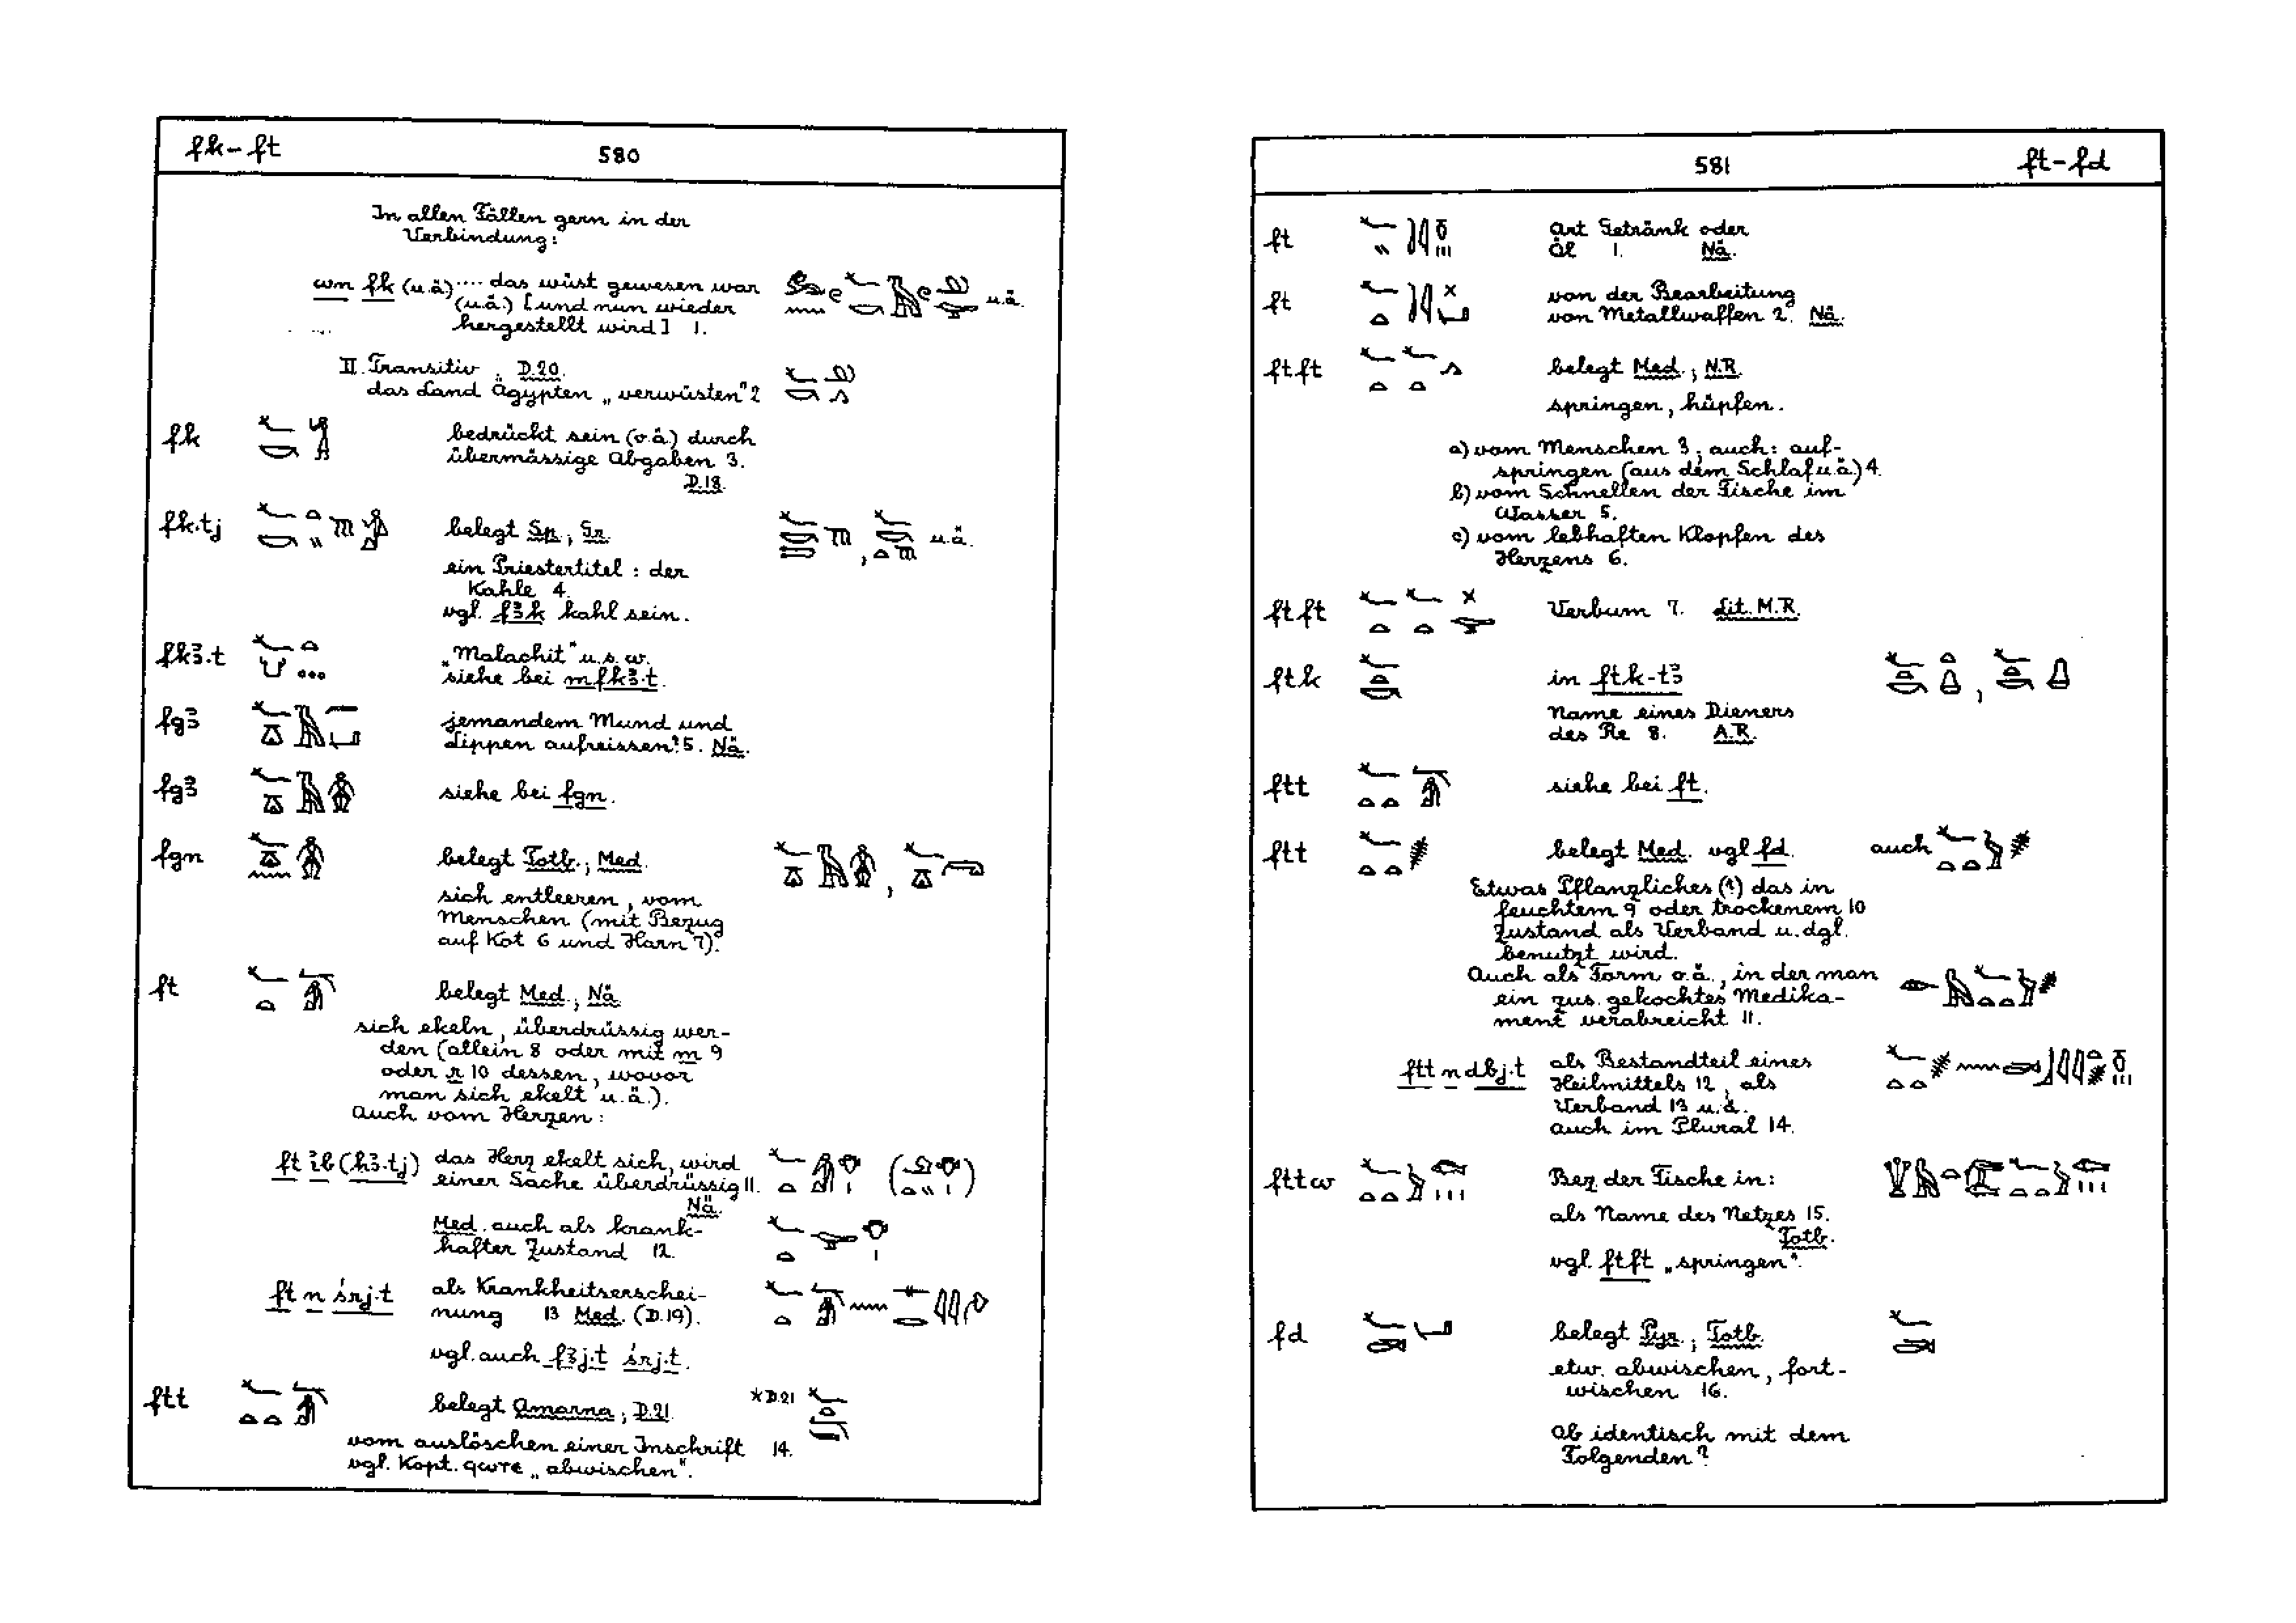 fk – ft
580
In allen Fällen gern in der
Verbindung:
wn fk (u.ä.) .... das wüst gewesen war
(u.ä.) [und nun wieder
hergestellt wird] 1.
u.ä.
II. Transitiv. D.20.
das Land Ägypten „verwüsten" 2
fk bedrückt sein (o.ä.) durch
übermässige Abgaben 3.
D.18.
fk·tj belegt Sp.; Gr. , u.ä.
ein Priestertitel: der
Kahle 4.
vgl. fꜣk kahl sein.
fkꜣ·t „Malachit" u.s.w.
siehe bei mfkꜣ·t.
fgꜣ jemandem Mund und
Lippen aufreissen? 5. Nä.
fgꜣ siehe bei fgn.
fgn belegt Totb.; Med. ,
sich entleeren, vom
Menschen (mit Bezug
auf Kot 6 und Harn 7).
ft belegt Med.; Nä.
sich ekeln, überdrüssig wer-
den (allein 8 oder mit m 9
oder r 10 dessen, wovor
man sich ekelt u.ä.).
Auch vom Herzen:
ft ꞽb (ḥꜣ·tj) das Herz ekelt sich, wird
einer Sache überdrüssig 11.
Nä.
Med. auch als krank-
hafter Zustand 12.
ft n śrj·t als Krankheitserschei-
nung 13 Med. (D.19).
vgl. auch fꜣj·t śrj·t.
ftt belegt Amarna; D.21. *D.21
vom auslöschen einer Inschrift 14.
vgl. Kopt. ϥⲱⲧⲉ „abwischen".
581
ft – fd
ft Art Getränk oder
Öl 1. Nä.
ft von der Bearbeitung
von Metallwaffen 2. Nä.
ftft belegt Med.; N.R.
springen, hüpfen.
a) vom Menschen 3; auch: auf-
springen (aus dem Schlaf u.ä.) 4.
b) vom Schnellen der Fische im
Wasser 5.
c) vom lebhaften Klopfen des
Herzens 6.
ftft Verbum 7. Lit. M.R.
ftk in ftk-tꜣ ,
Name eines Dieners
des Re 8. A.R.
ftt siehe bei ft.
ftt belegt Med. vgl fd. auch
Etwas Pflanzliches (?) das in
feuchtem 9 oder trockenem 10
Zustand als Verband u.dgl.
benutzt wird.
Auch als Form o.ä., in der man
ein zus. gekochtes Medika-
ment verabreicht 11.
ftt n dbj·t als Bestandteil eines
Heilmittels 12, als
Verband 13 u.ä.
auch im Plural 14.
fttw Bez. der Fische in:
als Name des Netzes 15.
Totb.
vgl. ftft „springen".
fd belegt Pyr.; Totb.
etw. abwischen, fort-
wischen 16.
Ob identisch mit dem
Folgenden?